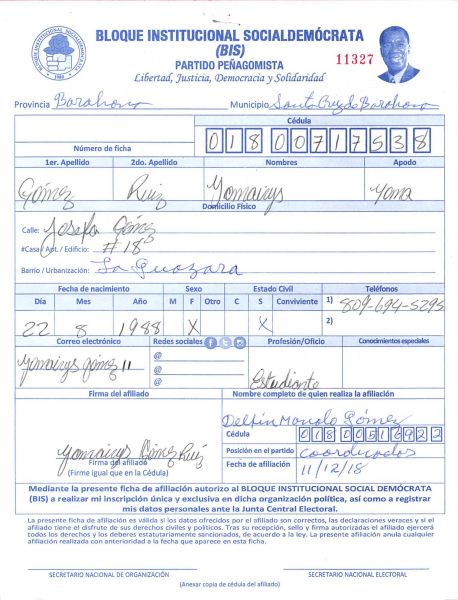 BLOQUE INSTITUCIONAL SOCIALDEMÓCRATA
(BIS)
PARTIDO PEÑAGOMISTA
11327
Libertad, Justicia, Democracia y Solidaridad
Provincia Barahona Municipio Santa Cruz de Barahona
Cédula
Número de ficha 018 0071753 8
1er. Apellido 2do. Apellido Nombres Apodo
Gómez Ruiz Yomairys Yoma
Domicilio Físico
Calle: Josefa Gómez
#Casa/Apt./Edificio: #18
Barrio / Urbanización: La Guazara
Fecha de nacimiento Sexo Estado Civil Teléfonos
Día Mes Año M F Otro C S Conviviente 1) 809-694-5295
22 8 1988 X X 2)
Correo electrónico Redes sociales Profesión/Oficio Conocimientos especiales
Yomairys gómez 11 @
@
@
Estudiante
Firma del afiliado Nombre completo de quien realiza la afiliación
Delfin Manolo Gómez
Cédula 018 0051692 2
Yomairys Gómez Ruiz Posición en el partido Coordinador
Firma del afiliado Fecha de afiliación 11/12/18
(Firme igual que en la Cédula)
Mediante la presente ficha de afiliación autorizo al BLOQUE INSTITUCIONAL SOCIAL DEMÓCRATA
(BIS) a realizar mi inscripción única y exclusiva en dicha organización política, así como a registrar
mis datos personales ante la Junta Central Electoral.
La presente ficha de afiliación es válida si los datos ofrecidos por el afiliado son correctos, las declaraciones veraces y si el afiliado
tiene el disfrute de sus derechos civiles y políticos. Tras su recepción, sello y firma autorizadas el afiliado ejercerá
todos los derechos y los deberes estatutariamente sancionados, de acuerdo a la ley. La presente afiliación anula cualquier
afiliación realizada con anterioridad a la fecha que aparece en esta ficha.
SECRETARIO NACIONAL DE ORGANIZACIÓN SECRETARIO NACIONAL ELECTORAL
(Anexar copia de cédula del afiliado)